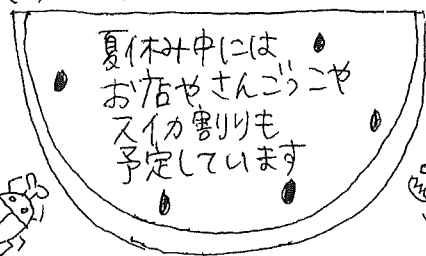 夏休み中には
お店やさんごっこや
スイカ割りも
予定しています